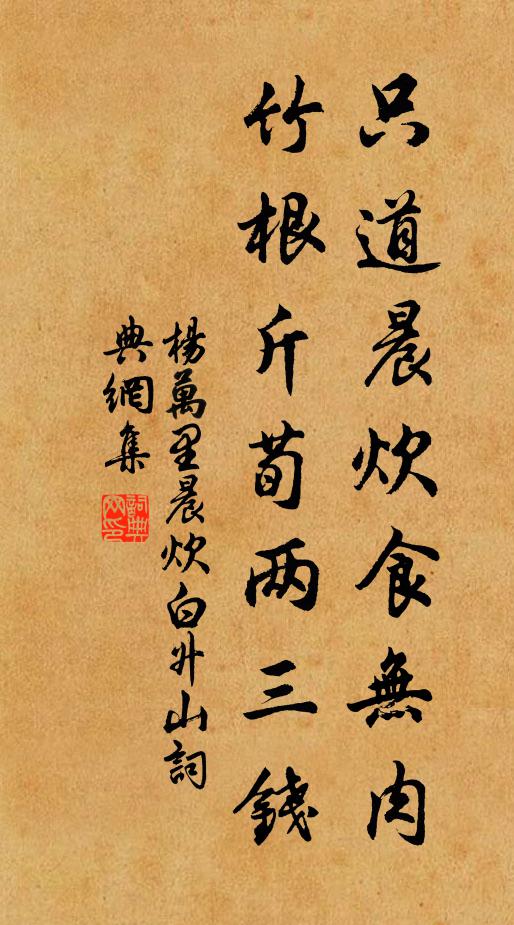 只道晨炊食無肉
竹根斤荀两三錢
楊萬里晨炊白升山詞
典網集
詞典網印